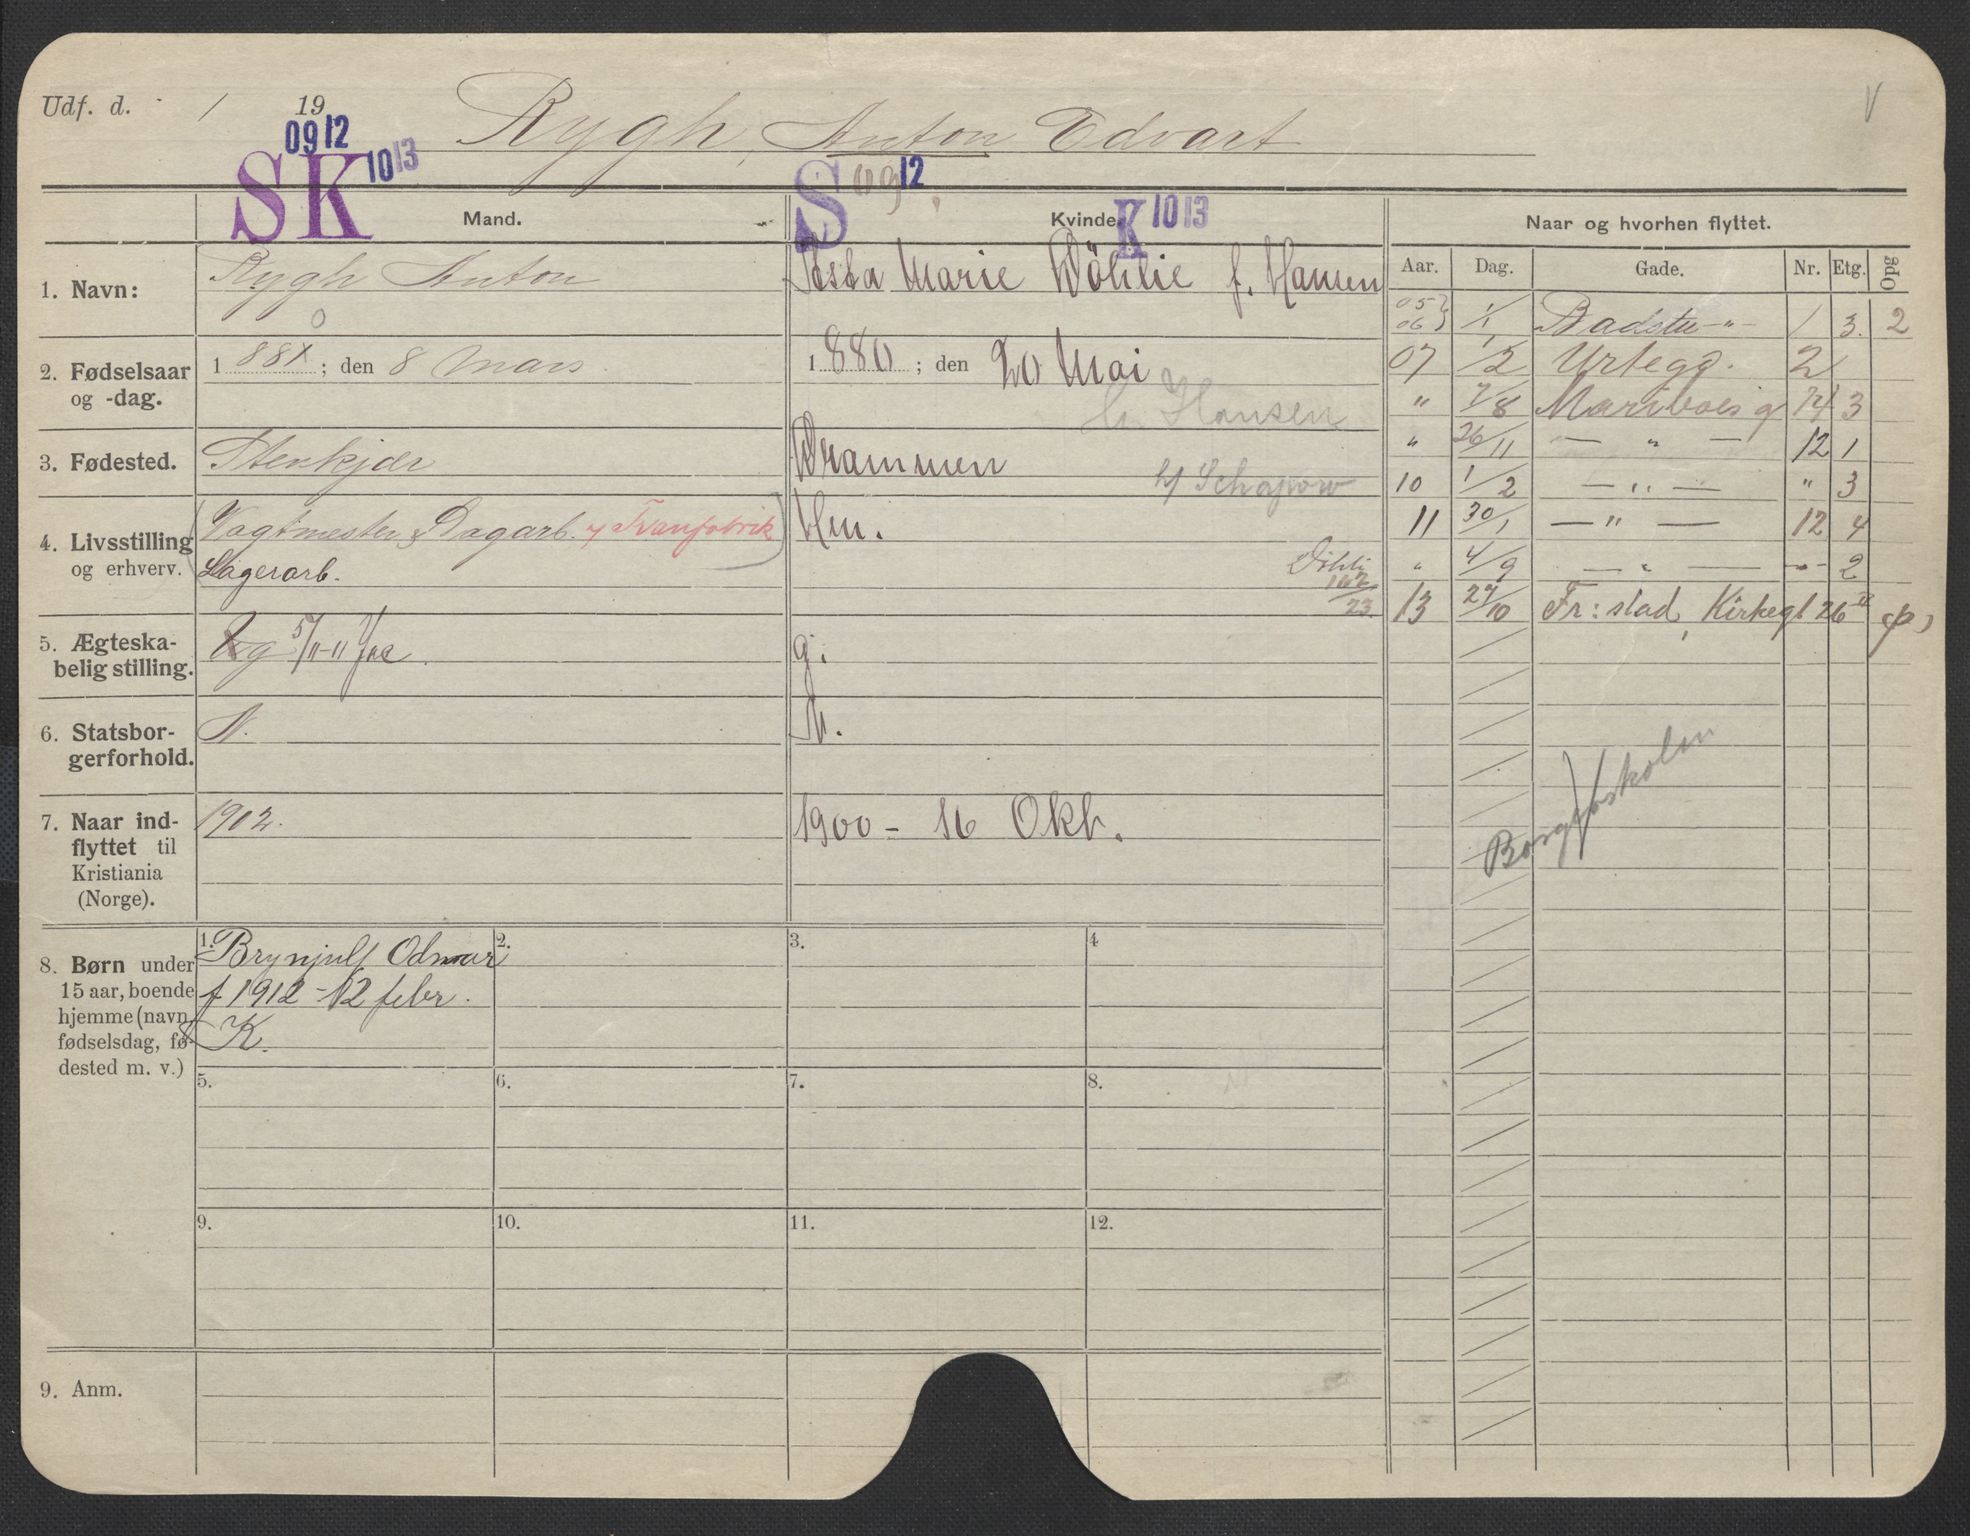 Udf. d. / 19
Rygh, Anton Edvart
V
0912
SK 1013
S 0912
K 1013
Mand.
Kvinde.
Naar og hvorhen flyttet.
Aar. Dag. Gade. Nr. Etg. Opg
1. Navn:
Rygh Anton
Marie Döhlie f. Hansen
2. Fødselsaar
og -dag.
1881 ; den 8 Mars
0
1880 ; den 20 Mai
Hansen
3. Fødested.
Stenkjær
Drammen
4. Livsstilling
og erhverv.
(Vagtmester, Dagarb. Tranfabrik)
Lagerarb.
Hu.
Döhli
162/23.
5. Ægteska-
belig stilling.
g 5/11-11 Jac
g.
6. Statsbor-
gerforhold.
N.
N.
7. Naar ind-
flyttet til
Kristiania
(Norge).
1902.
1900 - 16 Okb.
8. Børn under
15 aar, boende
hjemme (navn,
fødselsdag, fø-
dested m. v.)
1. Brynjulf Odmar
f 1912 - 12 febr.
K.
2.
3.
4
5.
6.
7.
8.
9.
10.
11.
12.
9. Anm.
05 } 1/1 Badstu - " - 1 3. 2
06
07 1/2 Urtegd. 2
" 7/8 Mariboes g 14 3
" 26/11 — " — 12 1
10 1/2 — " — " 3
11 30/1 — " — 12 4
" 4/9 — " — - " - 2
13 27/10 Fr:stad, Kirkegt 26 II (p)
Borgerskolen